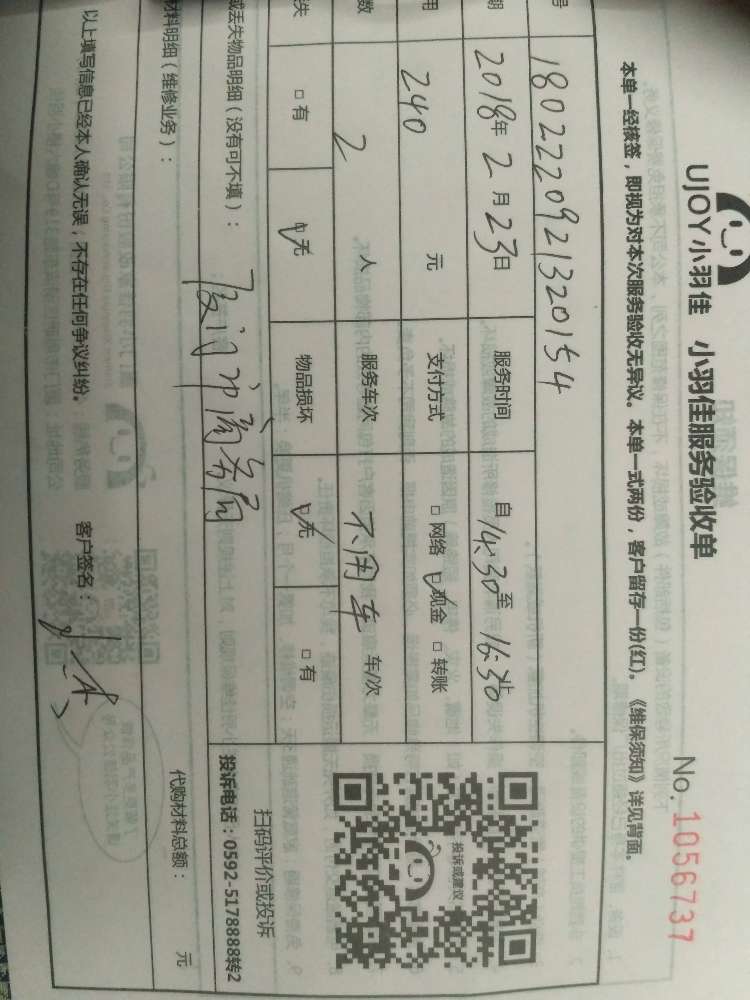 UJOY小羽佳 小羽佳服务验收单 No. 1056737
本单一经核签，即视为对本次服务验收无异议。本单一式两份，客户留存一份(红)。《维保须知》详见背面。
号 18022209213220154
期 2018年2月23日 服务时间 自14:30至16:30止
用 240 元 支付方式 □ 网络 ☑ 现金 □ 转账
数 2 人 服务车次 不用车 车/次
失 □ 有 ☑ 无 物品损坏 ☑ 无 □ 有
投诉或建议
扫码评价或投诉
投诉电话：0592-5178888转2
或丢失物品明细（没有可不填）：
厦门市商务局
材料明细（维修业务）： 代购材料总额： 元
以上填写信息已经本人确认无误，不存在任何争议纠纷。 客户签名：